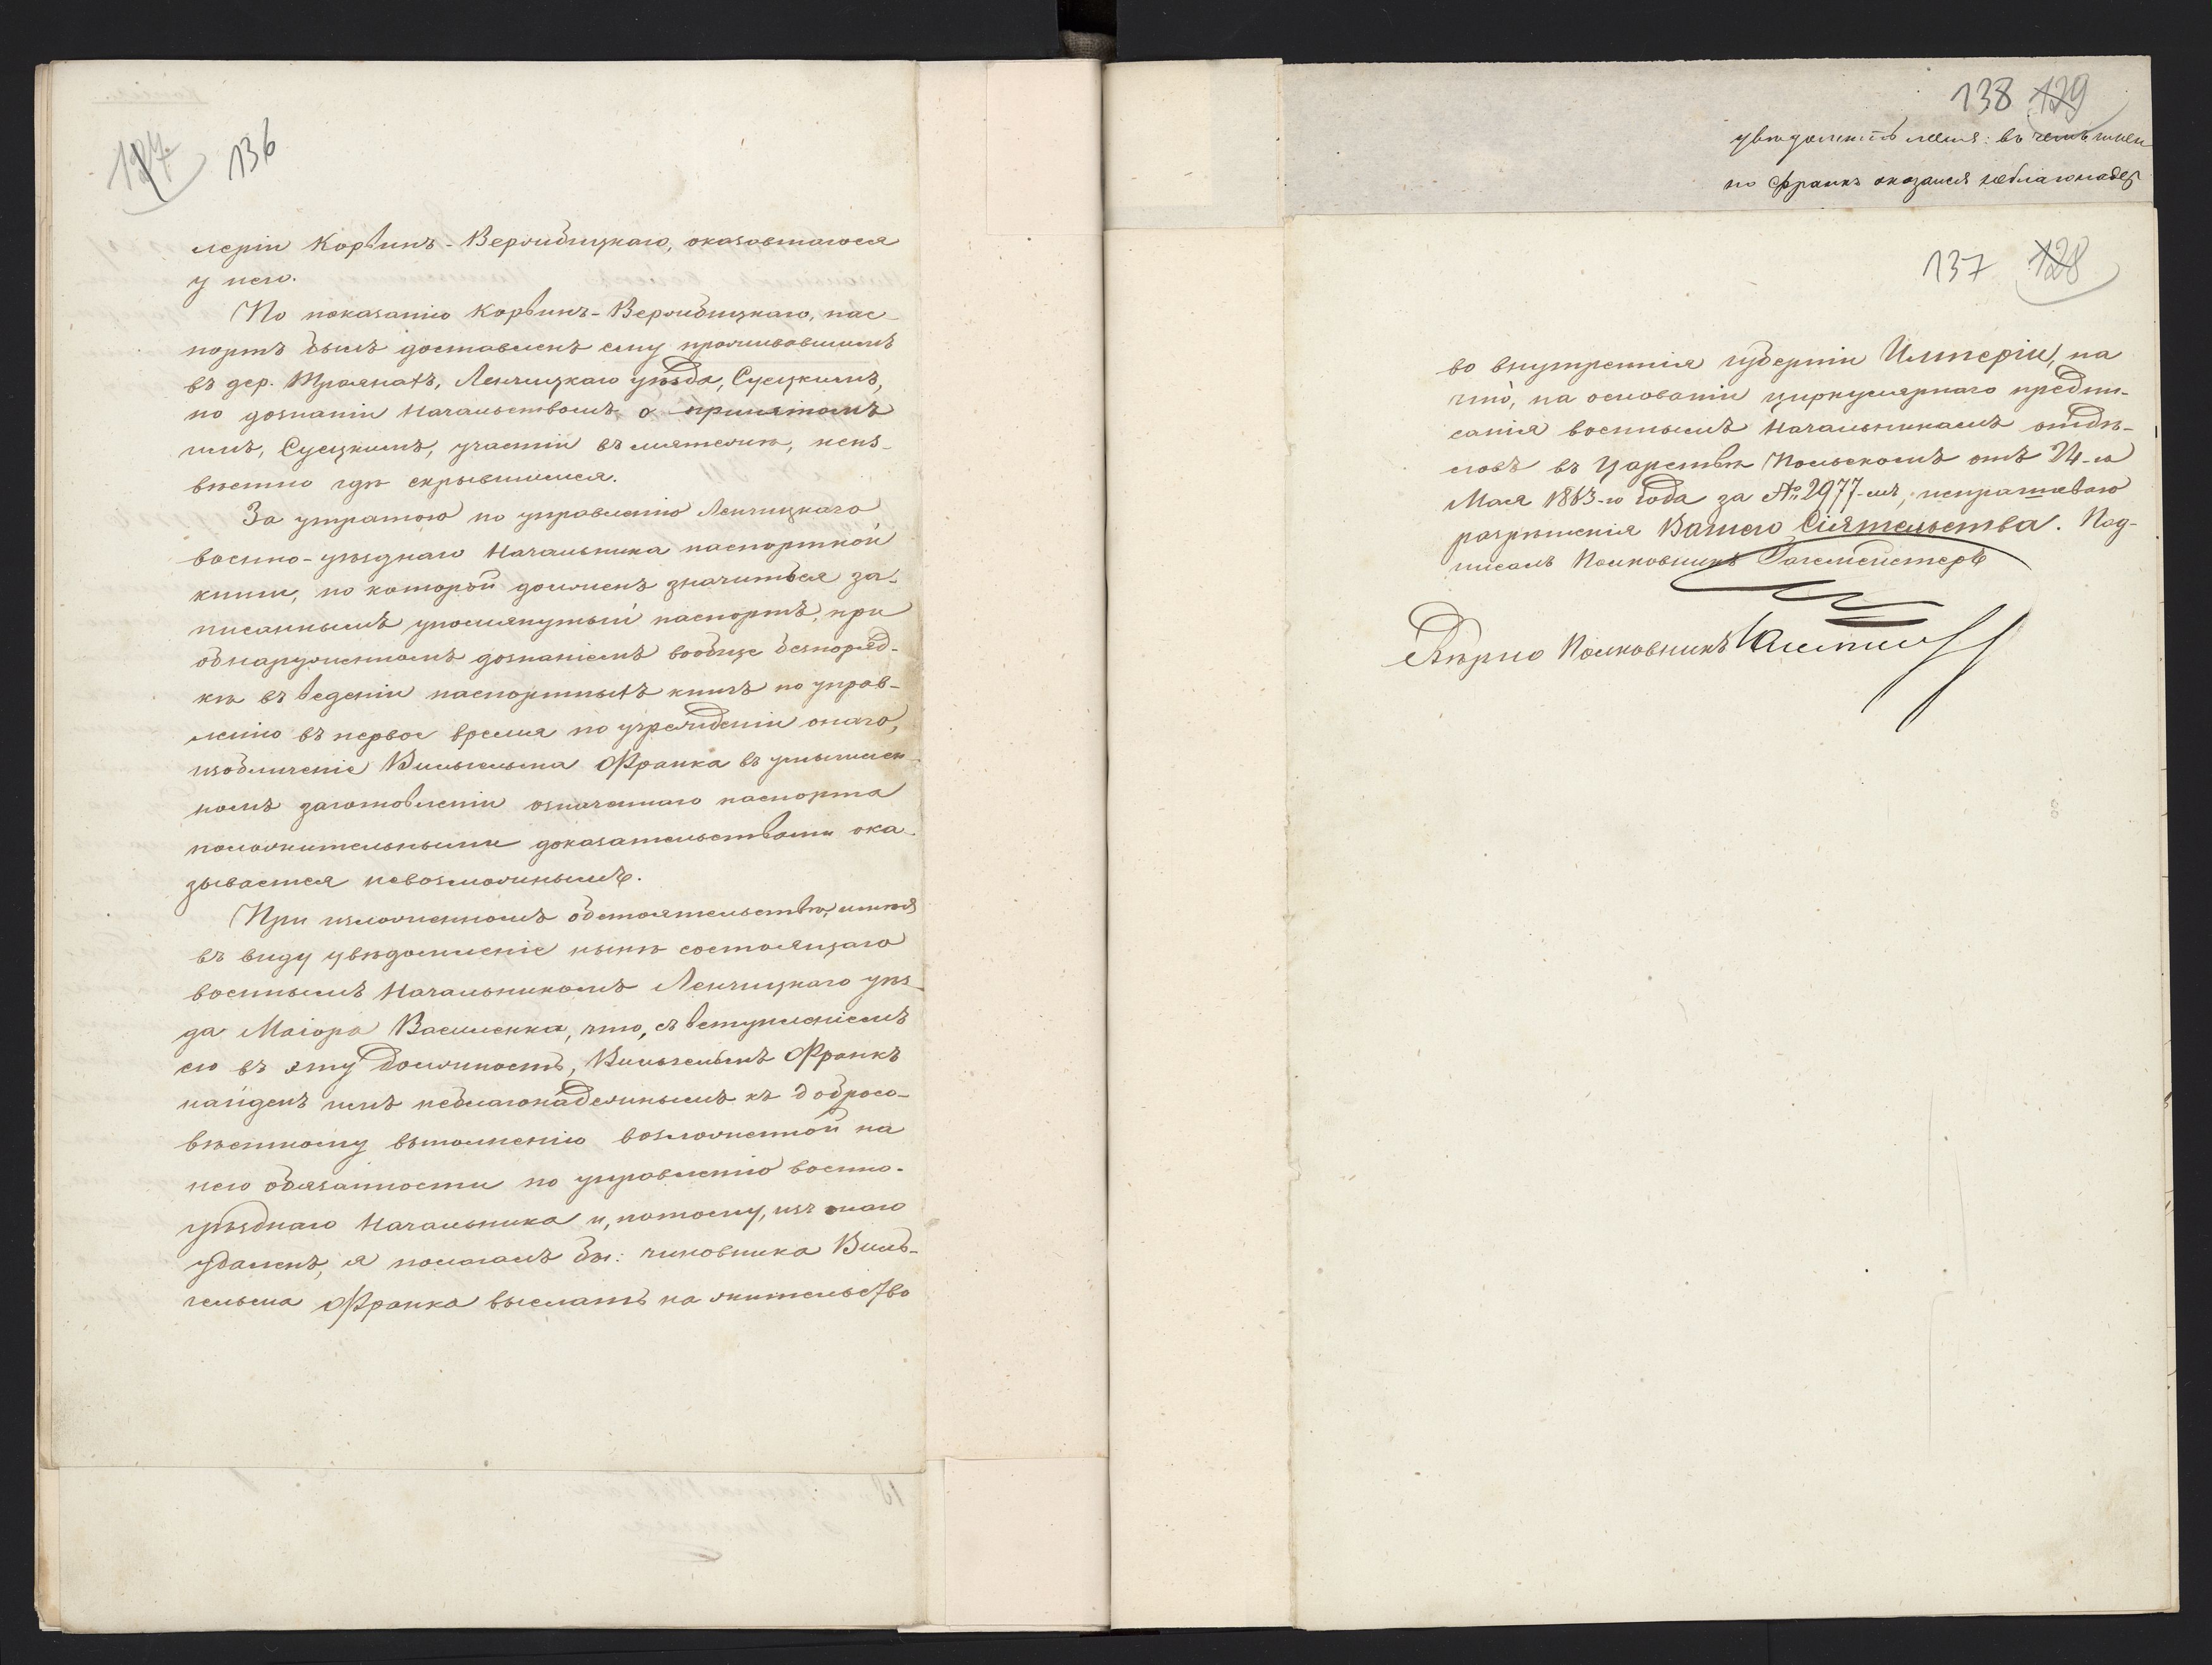 127 136
леріи Корвинъ-Вержбицкаго, оказавшагося
у него.
По показанію Корвинъ-Вержбицкаго, пас-
портъ былъ доставленъ ему проживавшимъ
въ дер. Троянахъ, Ленчицкаго уѣзда, Сусцкимъ,
по дознаніи Начальствомъ о принятомъ
имъ, Сусцкимъ, участіи въ мятежѣ, неиз-
вѣстно гдѣ скрывшимся.
За утратою по управленію Ленчицкаго
военно-уѣзднаго Начальника паспортной
книги, по которой долженъ значиться за-
писаннымъ упомянутый паспортъ, при
обнаруженномъ дознаніемъ вообще безпоряд-
кѣ въ веденіи паспортныхъ книгъ по управ-
ленію въ первое время по учрежденіи онаго,
изобличеніе Вильгельма Франка въ умышлен-
номъ заготовленіи означеннаго паспорта
положительными доказательствами ока-
зывается невозможнымъ.
При изложенномъ обстоятельствѣ, имѣя
въ виду увѣдомленіе нынѣ состоящаго
военнымъ Начальникомъ Ленчицкаго уѣз-
да Маіора Василенка, что, съ вступленіемъ
его въ эту должность, Вильгельмъ Франкъ
найденъ имъ неблагонадежнымъ къ добросо-
вѣстному выполненію возложенной на
него обязанности по управленію военно-
уѣзднаго Начальника и, потому, изъ онаго
удаленъ, я полагалъ бы: чиновника Виль-
гельма Франка выслать на жительство
138 129
увѣдомить меня: въ чемъ имен
но Франкъ оказался неблагонадеж
137 128
во внутреннія губерніи Имперіи, на
что, на основаніи циркулярнаго предпи-
санія военнымъ Начальникамъ отдѣ-
ловъ въ Царствѣ Польскомъ отъ 24-го
Мая 1863-го года за № 2977-мъ, испрашиваю
разрѣшенія Вашего Сіятельства. Под-
писалъ Полковникъ Гагемейстеръ
Вѣрно Полковникъ